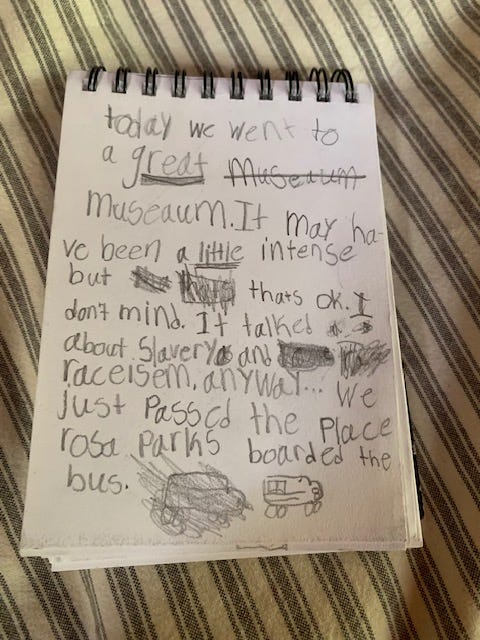 today we went to
a great Museaum
Museaum. It may ha-
ve been a little intense
but thats ok. I
don't mind. It talked
about Slavery and
raceisem, anyway... We
just Passed the Place
rosa Parks boarded the
bus.